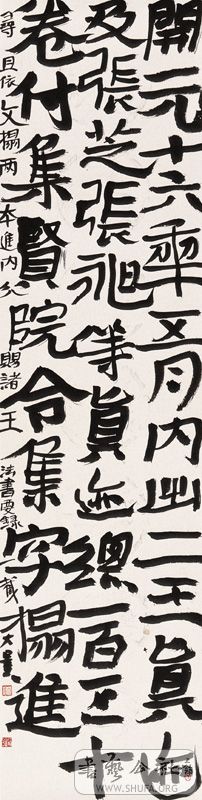 開元十六年五月內出二王真迹
及張芝張昶等真迹總一百五十
卷付集賢院合集字搨進
尋且依文搨兩本進內分賜諸王 法書要録載 大
書藝公社
WWW.SHUFA.ORG